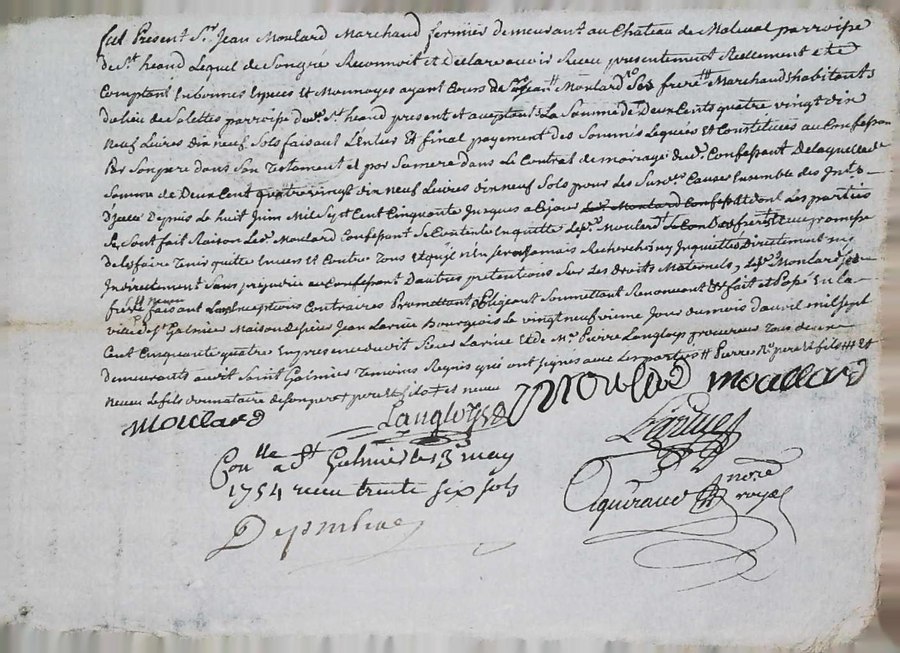 fut Present Sr. Jean Moulard Marchand fermier demeurant au Château de Maleval parroisse
de St heand Lequel de Son gré Reconnoit et declare avoir Receu presentement Reellement et
Comptant En bonnes Especes et Monnoyes ayant Cours de Jean Moulard Son frere Marchand habitant
du lieu de parroisse dud. St heand present et acceptant La Somme de Deux Cents quatre vingt dix
Neuf Livres dix neuf Sols faisant L'entier Et final payement des Sommes Leguées et Constituées au Confessant
Par Son pere dans Son Testament et par Sa mere dans Le Contrat de mariage dud. Confessant De laquelle de
Somme de Deux Cent quatre vingt dix Neuf Livres dix neuf Sols pour Les Susd. Causes Ensemble des Int.
Depuis Le huit Juin Mil Sept Cent Cinquante Jusques a Ce jour Led. Moulard Confessant dont Les parties
Se Sont fait Raison Led. Moulard Confessant Se Contente En quitte Led. Moulard Son frere avec promesse
de le faire Tenir quitte Envers et Contre Tous Et qu'il n'en Sera Jamais Recherché ny Inquietté Directement ny
Indirectement Sans prejudice au Confessant D'autres pretentions Sur Les Droits Maternels, Led. Moulard Son
frere faisant Les Exceptions Contraires Promettant Obligeant Soumettant Renonçant &c fait et Passé En la
ville de St Galmier Maison de Sieur Jean Larive Bourgeois Le vingt neuvieme Jour du mois d'avril mil Sept
Cent Cinquante quatre En presence dudit Sieur Larive Et de Me. Pierre Langloys procureur Tous deux
demeurants audit Saint Galmier Temoins Requis qui ont Signés avec Les parties Pierre pere et fils Et
neveu Le fils donnataire de Son pere
Moulard Langloys Moulard moullard
Larive
Conlle a St Galmier le 13 may
1754 receu trente six sols